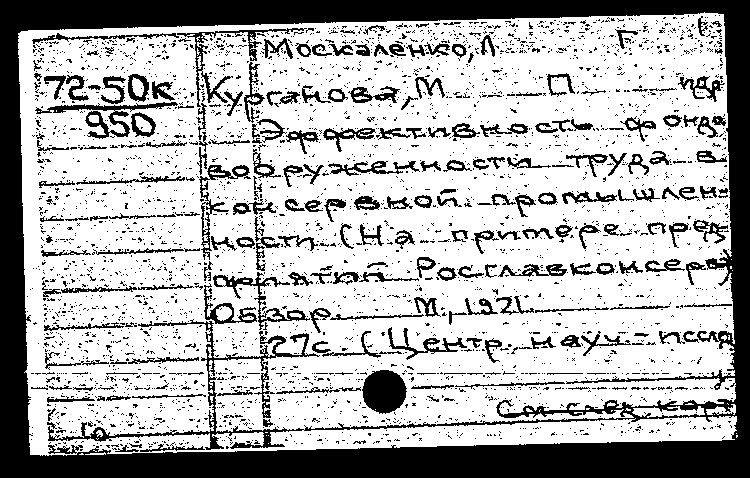 Москаленко, Л Г
72-50к
950
Курганова, М П пдр
Эффективность фонда
вооруженности труда в
консервной промышлен-
ности (На примере пред
приятий Росглавконсерв)
Обзор. М., 1971.
27с. (Центр. науч.-иссл
См след карт